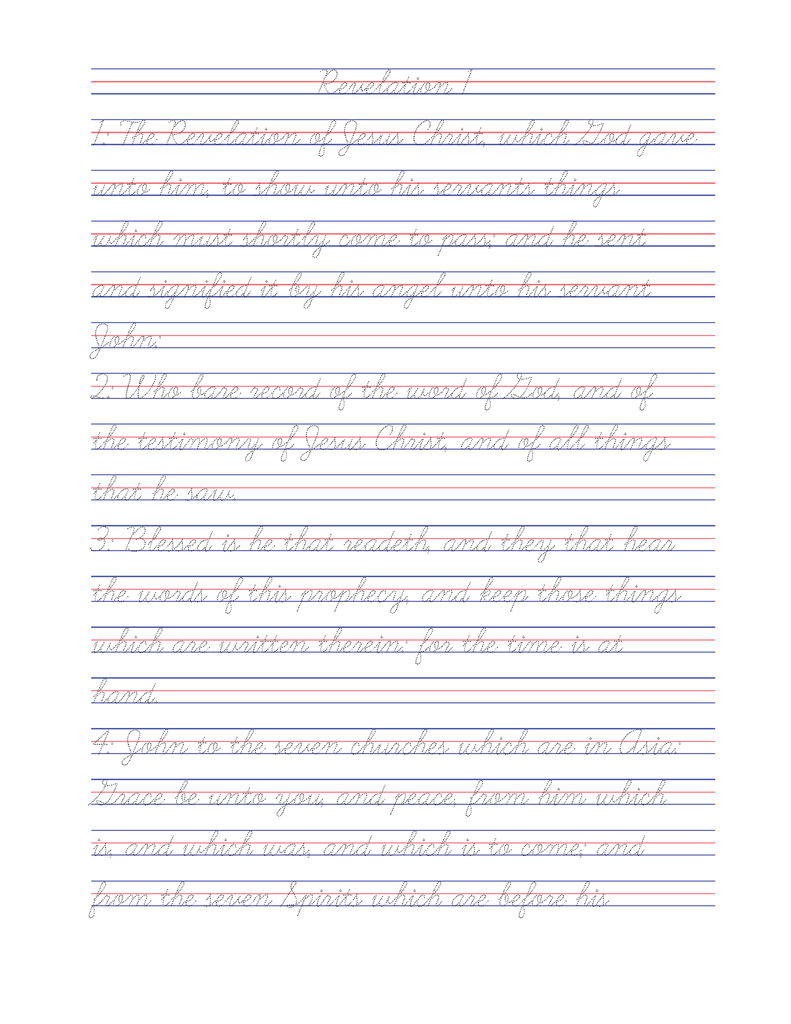 Revelation 1
1: The Revelation of Jesus Christ, which God gave
unto him, to show unto his servants things
which must shortly come to pass; and he sent
and signified it by his angel unto his servant
John:
2: Who bare record of the word of God, and of
the testimony of Jesus Christ, and of all things
that he saw.
3: Blessed is he that readeth, and they that hear
the words of this prophecy, and keep those things
which are written therein: for the time is at
hand.
4: John to the seven churches which are in Asia:
Grace be unto you, and peace, from him which
is, and which was, and which is to come; and
from the seven Spirits which are before his